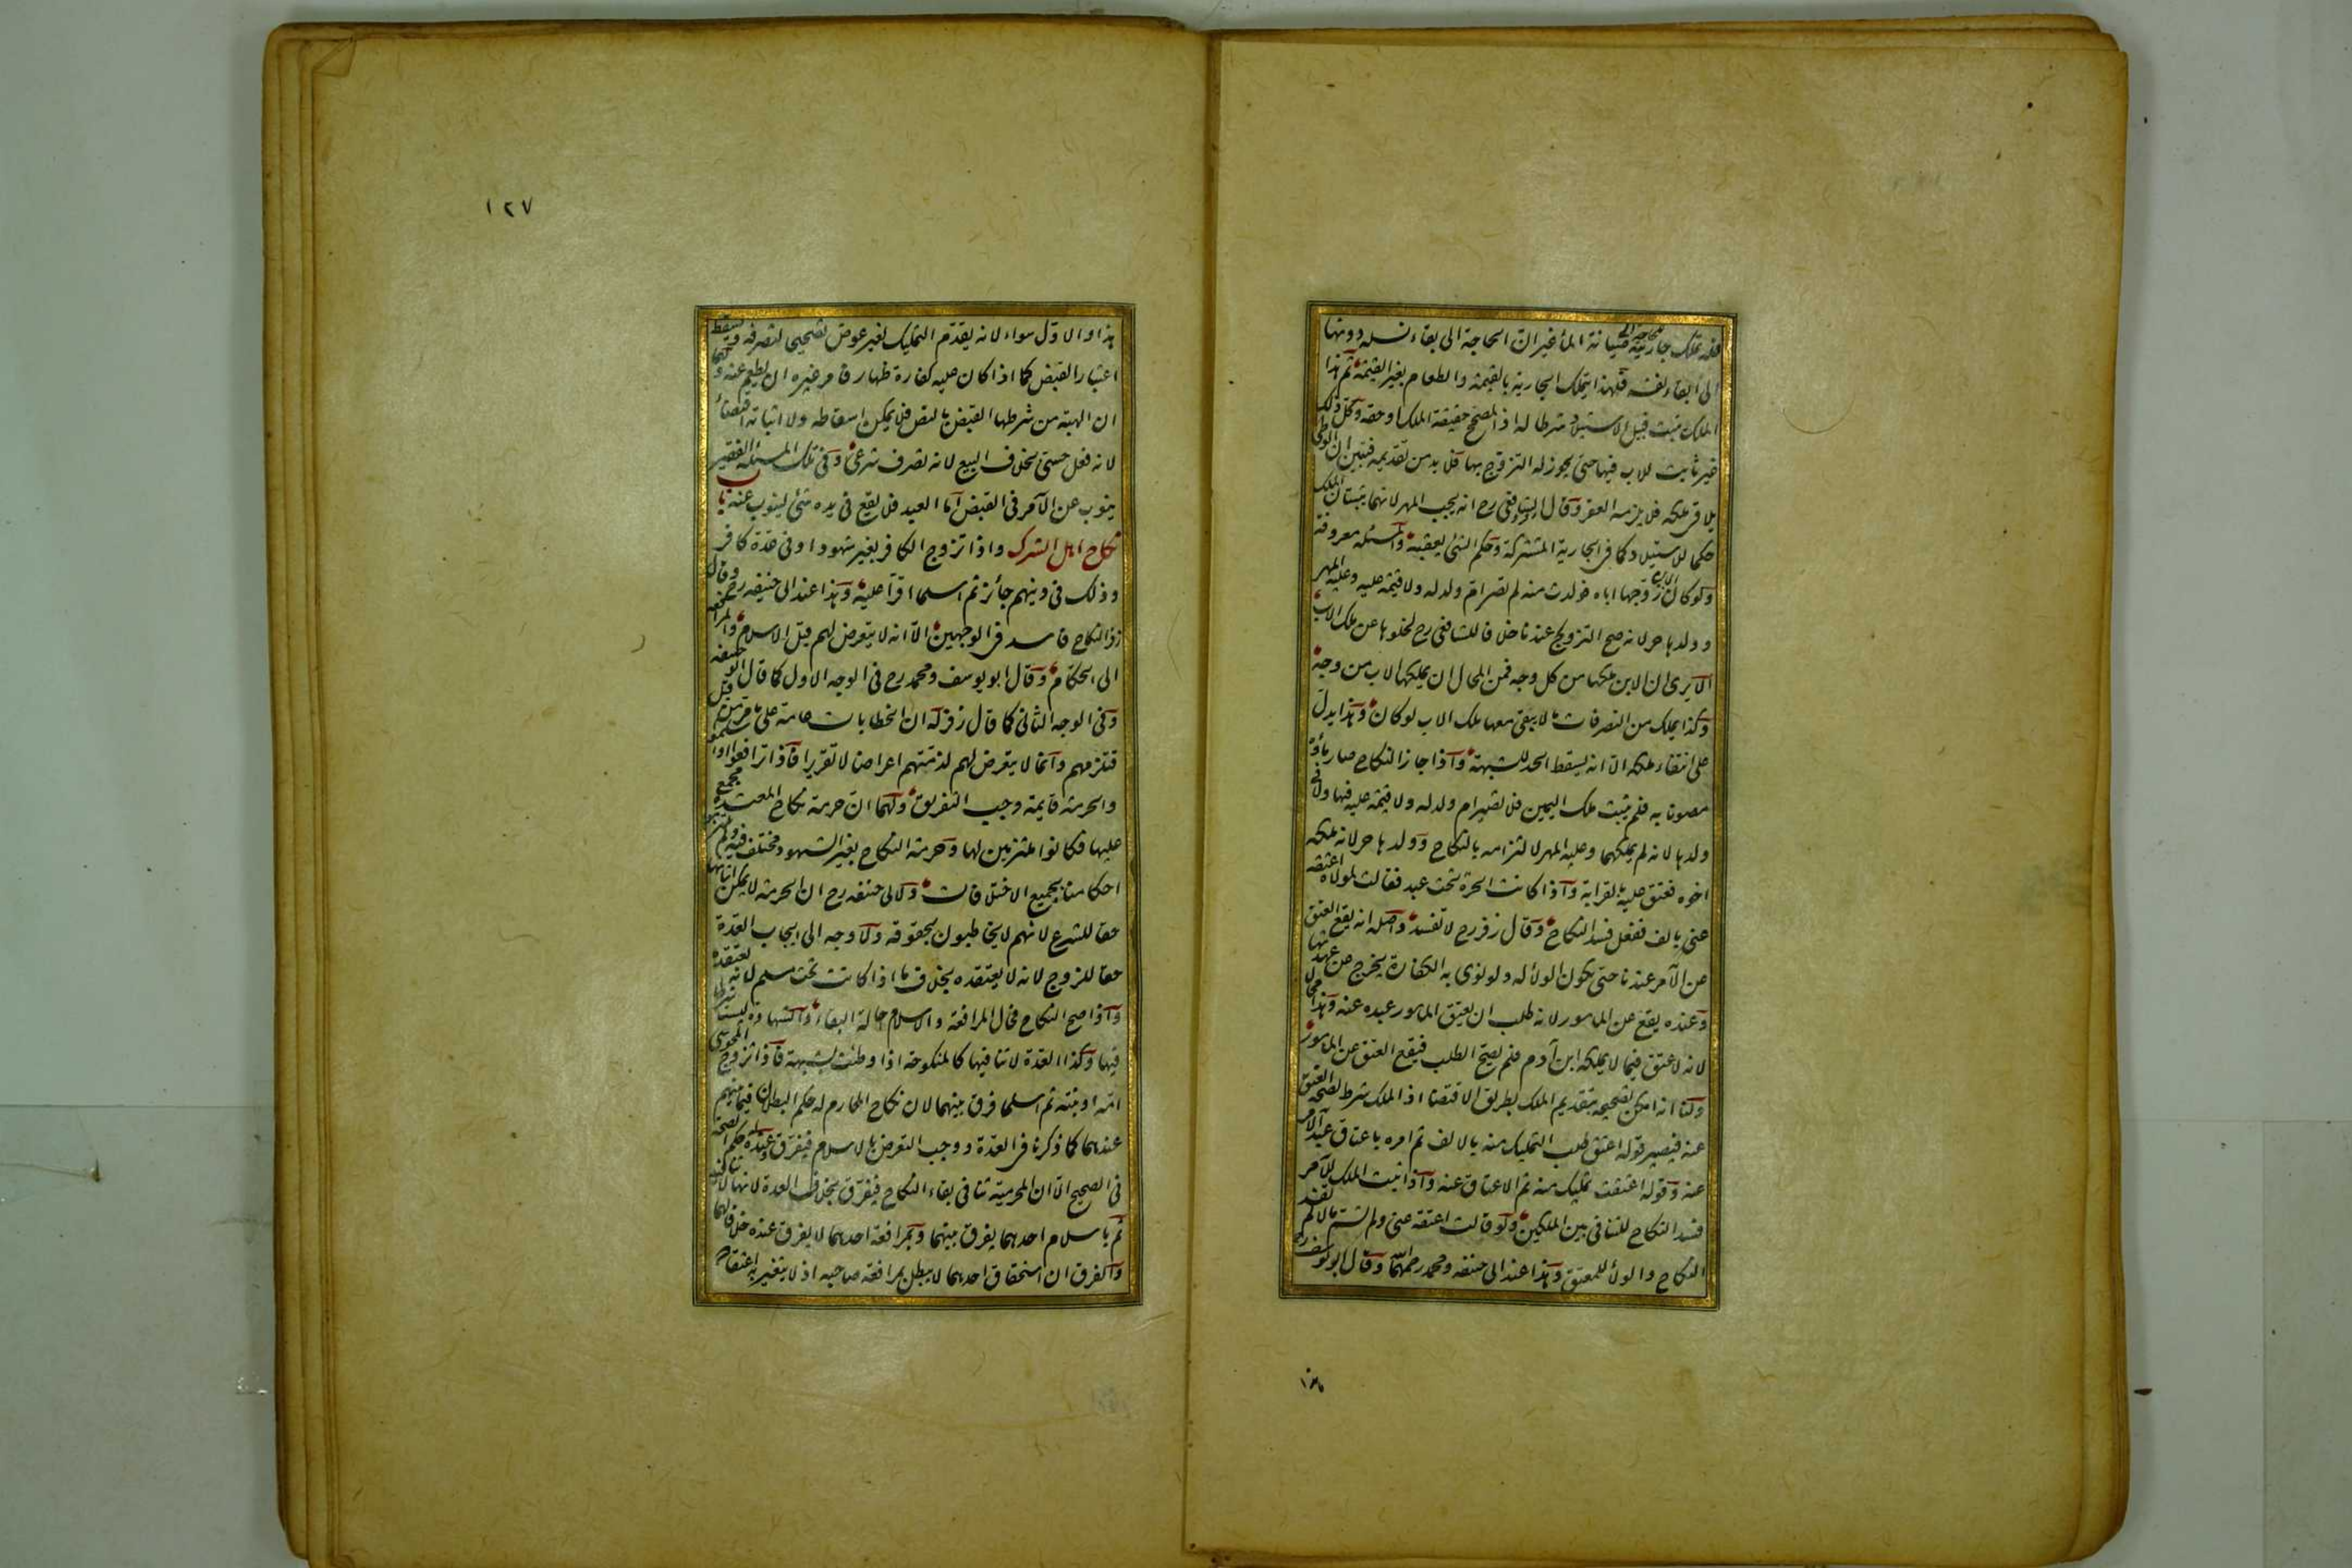 فله تملك جاريته للحاجة الى صيانة الماء غير ان الحاجة الى بقاء نسله دونها
الى ابقاء نفسه فلهذا يتملك الجارية بالقيمة والطعام بغير القيمة ثم هذا
الملك يثبت قبيل الاستيلاد شرطا له اذ المصحح حقيقة الملك او حقه وكل ذلك
غير ثابت للاب فيها حتى يجوز له التزوج بها فلا بد من تقديمه فتبين ان الوطى
يلاقى ملكه فلا يلزمه العقر وقال زفر والشافعى رح انه يجب المهر لانهما يثبتان الملك
حكما للاستيلاد كما فى الجارية المشتركة وحكم الشئ يعقبه والمسئلة معروفة
ولو كان الابن زوجها اباه فولدت منه لم تصر ام ولد له ولا قيمة عليه وعليه المهر
وولدها حر لانه صح التزوج عندنا خلافا للشافعى رح لخلوها عن ملك الاب
الا يرى ان الابن ملكها من كل وجه فمن المحال ان يملكها الاب من وجه
وكذا يملك من التصرفات ما لا يبقى معها ملك الاب لو كان وهذا يدل
على انتفاء ملكه الا انه يسقط الحد للشبهة واذا جاز النكاح صار ماؤه
مصونا به فلم يثبت ملك اليمين فلا تصير ام ولد له ولا قيمة عليه فيها ولا فى
ولدها لانه لم يملكهما وعليه المهر لالتزامه بالنكاح وولدها حر لانه ملكه
اخوه فعتق عليه بالقرابة واذا كانت الحرة تحت عبد فقالت لمولاه اعتقه
عنى بالف ففعل فسد النكاح وقال زفر رح لا تفسد واصله انه يقع العتق
عن الآمر عندنا حتى يكون الولاء له ولو نوى به الكفارة يخرج عن عهدتها
وعنده يقع عن المامور لانه طلب ان يعتق المامور عبده عنه وهذا محال
لانه لا عتق فيما لا يملكه ابن آدم فلم يصح الطلب فيقع العتق عن المامور
ولنا انه امكن تصحيحه بتقديم الملك بطريق الاقتضا اذ الملك شرط لصحة العتق
عنه فيصير قوله اعتق طلب التمليك منه بالالف ثم امره باعتاق عبد الآمر
عنه وقوله اعتقت تمليك منه ثم الاعتاق عنه واذا ثبت الملك للآمر
فسد النكاح للتنافى بين الملكين ولو قالت اعتقه عنى ولم تسم مالا لم يفسد
النكاح والولاء للمعتق وهذا عند ابى حنيفه ومحمد رحمهما الله وقال ابو يوسف رح
١٢٧
هذا والاول سواء لانه يقدم التمليك بغير عوض تصحيحا لتصرفه ويسقط
اعتبار القبض كما اذا كان عليه كفارة ظهار فامر غيره ان يطعم عنه ولهما
ان الهبة من شرطها القبض بالنص فلا يمكن اسقاطه ولا اثباته اقتضاء
لانه فعل حسى بخلاف البيع لانه تصرف شرعى وفى تلك المسئلة الفقير
ينوب عن الآمر فى القبض اما العبد فلا يقع فى يده شئ لينوب عنه باب
نكاح اهل الشرك واذا تزوج الكافر بغير شهود او فى عدة كافر
وذلك فى دينهم جائز ثم اسلما اقرا عليه وهذا عند ابى حنيفه رح وقال
زفر النكاح فاسد فى الوجهين الا انه لا يتعرض لهم قبل الاسلام والمرافعة
الى الحكام وقال ابو يوسف ومحمد رح فى الوجه الاول كما قال ابو حنيفه
وفى الوجه الثانى كما قال زفر له ان الخطابات عامة على ما مر من قبل
فتلزمهم وانما لا يتعرض لهم لذمتهم اعراضا لا تقريرا فاذا ترافعوا او اسلموا
والحرمة قايمة وجب التفريق ولهما ان حرمة نكاح المعتدة مجمع
عليها فكانوا ملتزمين لها وحرمة النكاح بغير الشهود مختلف فيه ولم يلتزموا
احكامنا بجميع الاختلافات ولابى حنيفه رح ان الحرمة لا يمكن اثباتها
حقا للشرع لانهم لا يخاطبون بحقوقه ولا وجه الى ايجاب العدة
حقا للزوج لانه لا يعتقده بخلاف ما اذا كانت تحت مسلم لانه يعتقده
واذا صح النكاح فحال المرافعة والاسلام حالة البقاء والشهادة ليست شرطا
فيها وكذا العدة لا تنافيها كالمنكوحة اذا وطئت بشبهة فاذا تزوج المجوسى
امه او بنته ثم اسلما فرق بينهما لان نكاح المحارم له حكم البطلان فيما بينهم
عندهما كما ذكرنا فى العدة ووجب التعرض بالاسلام فيفرق وعنده حكم الصحة
فى الصحيح الا ان المحرمية تنافى بقاء النكاح فيفرق بخلاف العدة لانها لا تنافيه
ثم باسلام احدهما يفرق بينهما وبمرافعة احدهما لا يفرق عنده خلافا لهما
والفرق ان استحقاق احدهما لا يبطل بمرافعة صاحبه اذ لا يتغير به اعتقاد